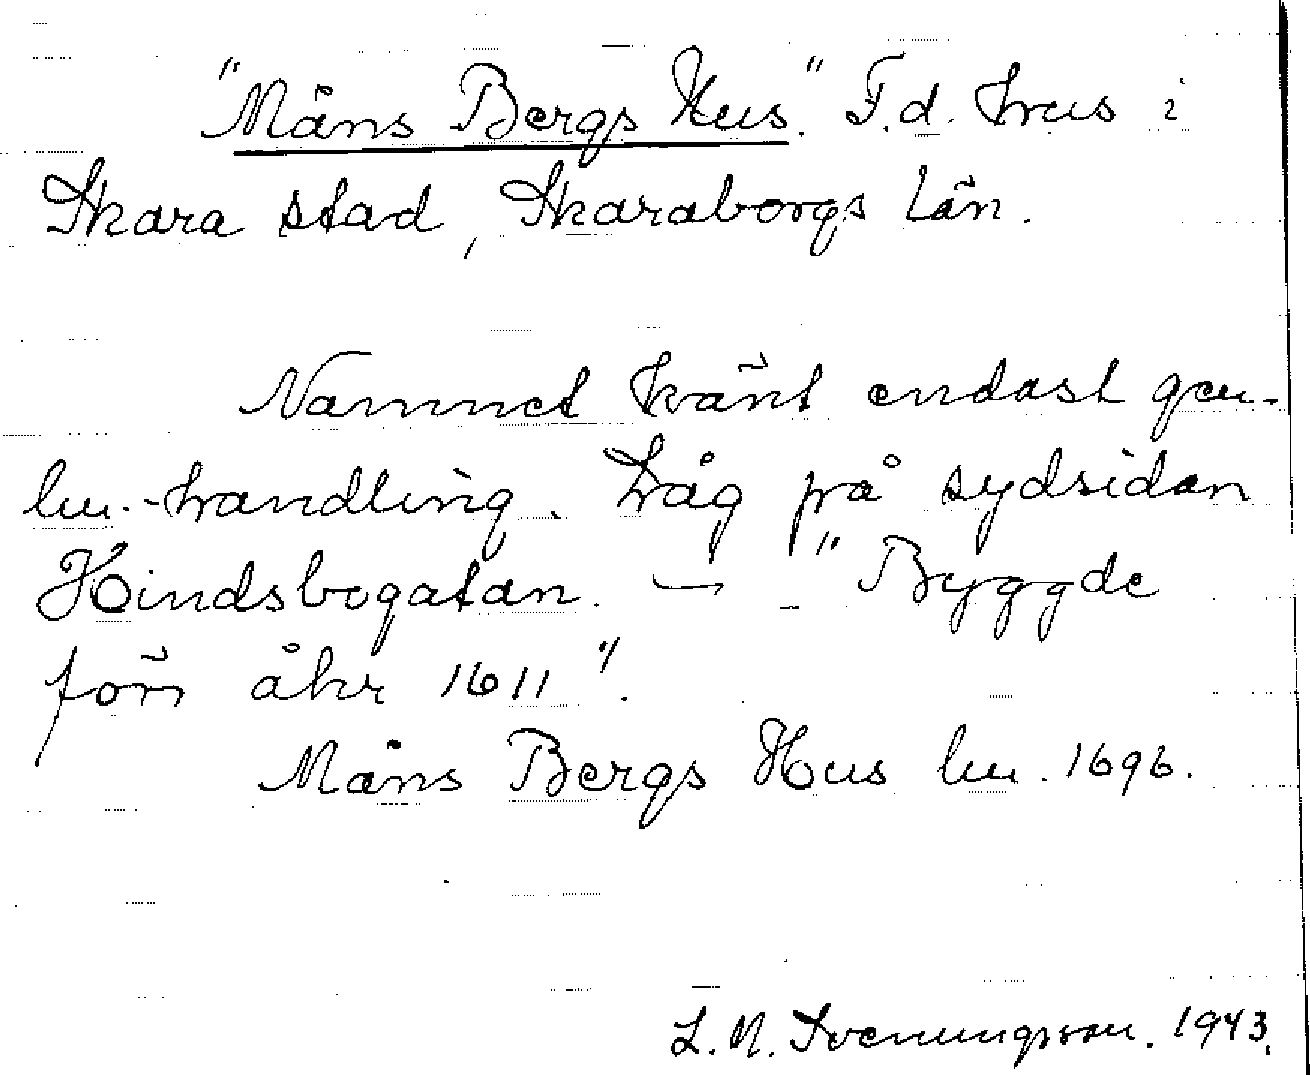 "Måns Bergs Hus." F.d. hus i
Skara stad, Skaraborgs län.
Namnet känt endast gen.
lm.-handling. Låg på sydsidan
Hindsbogatan. — "Byggde
före åhr 1611".
Måns Bergs Hus lm. 1696.
L. N. Svenungsson. 1943.